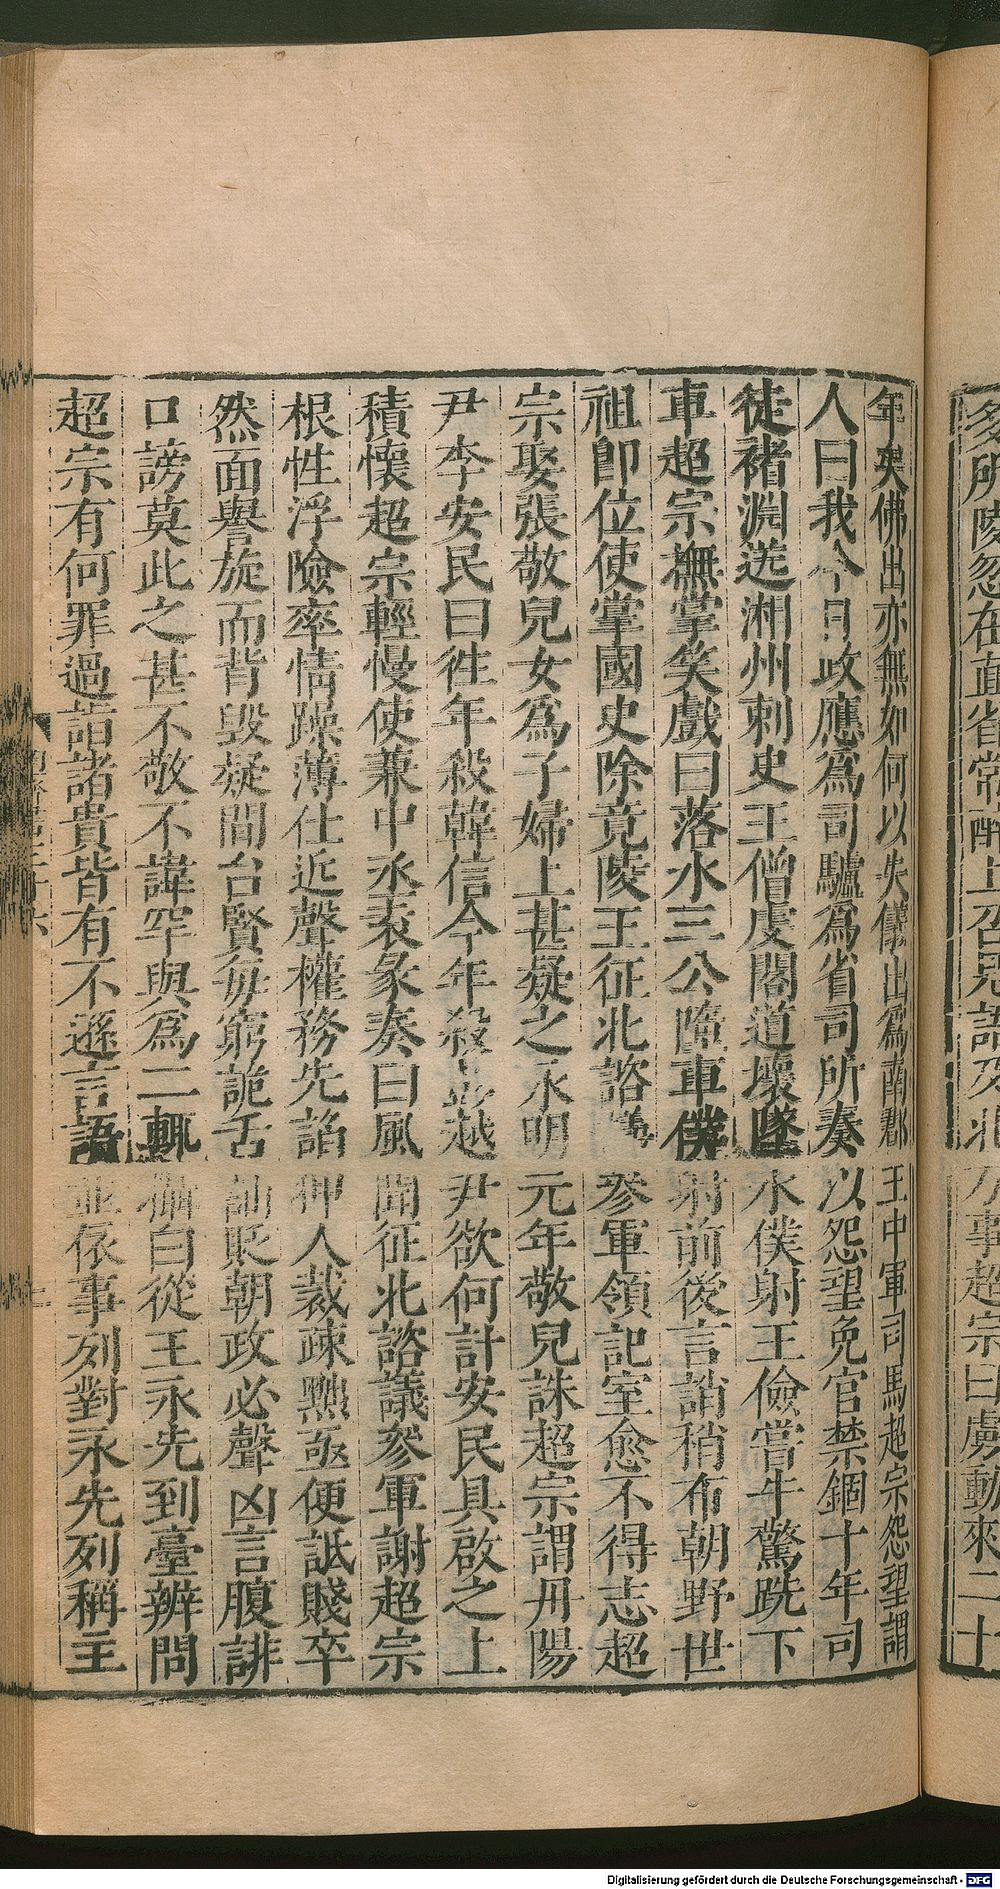 多所陵忽在直省常醉上召見語及北方事超宗曰虜動來二十
年矣佛出亦無如何以失儀出爲南郡王中軍司馬超宗怨望謂
人曰我今日政應爲司驢爲省司所奏以怨望免官禁錮十年司
徒褚淵送湘州刺史王僧虔閣道壞墜水僕射王儉嘗牛驚跣下
車超宗撫掌笑戲曰落水三公墮車僕射前後言誚稍布朝野世
祖卽位使掌國史除竟陵王征北諮議參軍領記室愈不得志超
宗娶張敬兒女爲子婦上甚疑之永明元年敬兒誅超宗謂丹陽
尹李安民曰徃年殺韓信今年殺彭越尹欲何計安民具啟之上
積懷超宗輕慢使兼中丞袁彖奏曰風聞征北諮議參軍謝超宗
根性浮險率情躁薄仕近聲權務先諂狎人裁疎黜亟便詆賤卒
然面譽旋而背毀疑間台賢每窮詭舌訕貶朝政必聲凶言腹誹
口謗莫此之甚不敬不諱罕與爲二輒攝白從王永先到臺辨問
超宗有何罪過詣諸貴皆有不遜言語並依事列對永先列稱主
Digitalisierung gefördert durch die Deutsche Forschungsgemeinschaft - DFG